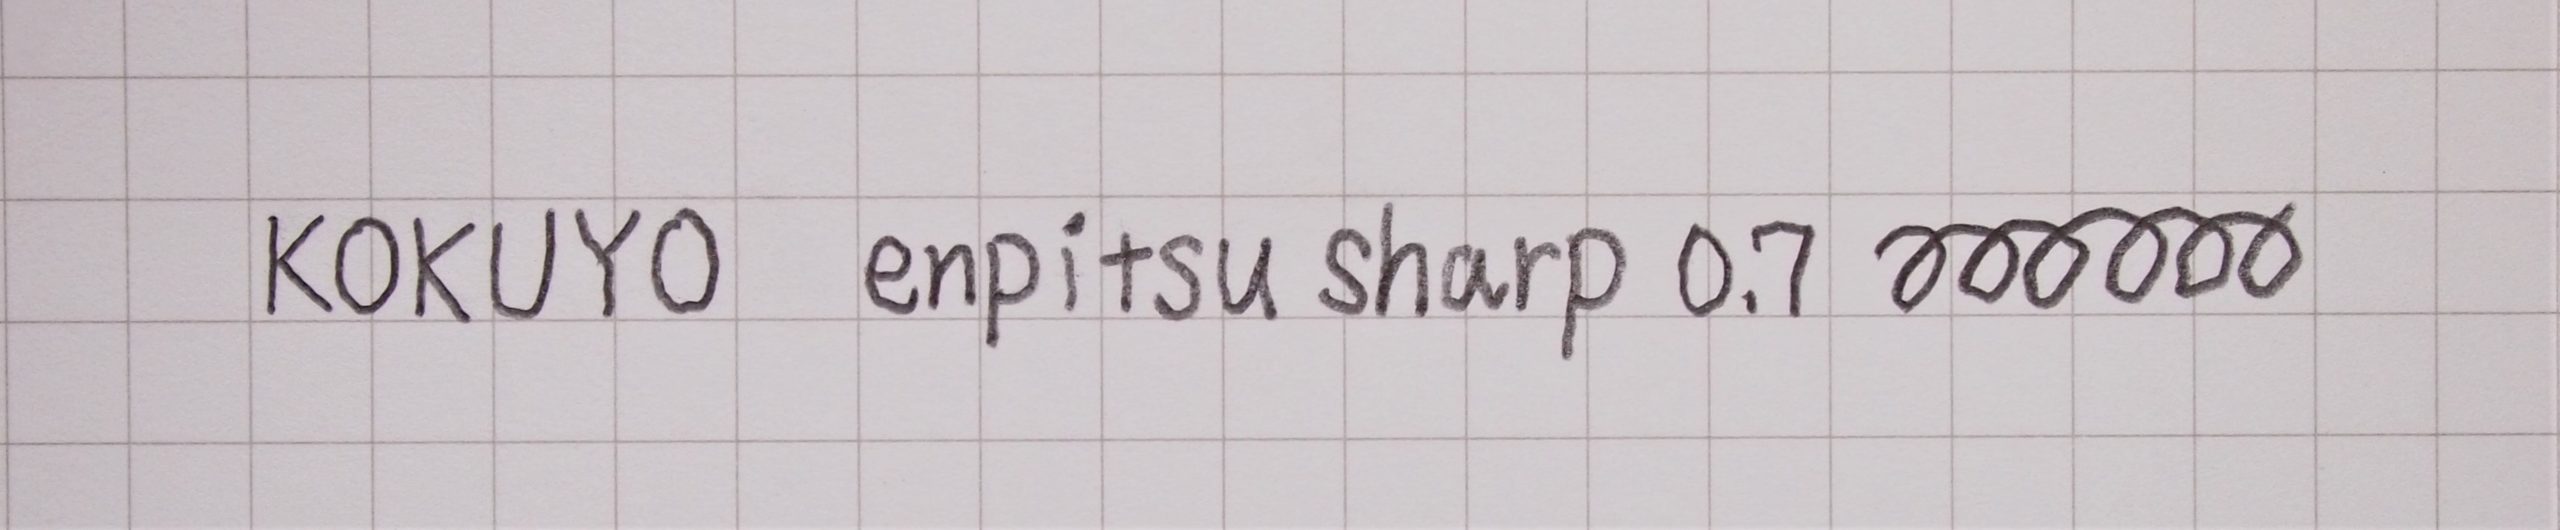 KOKUYO enpitsu sharp 0.7